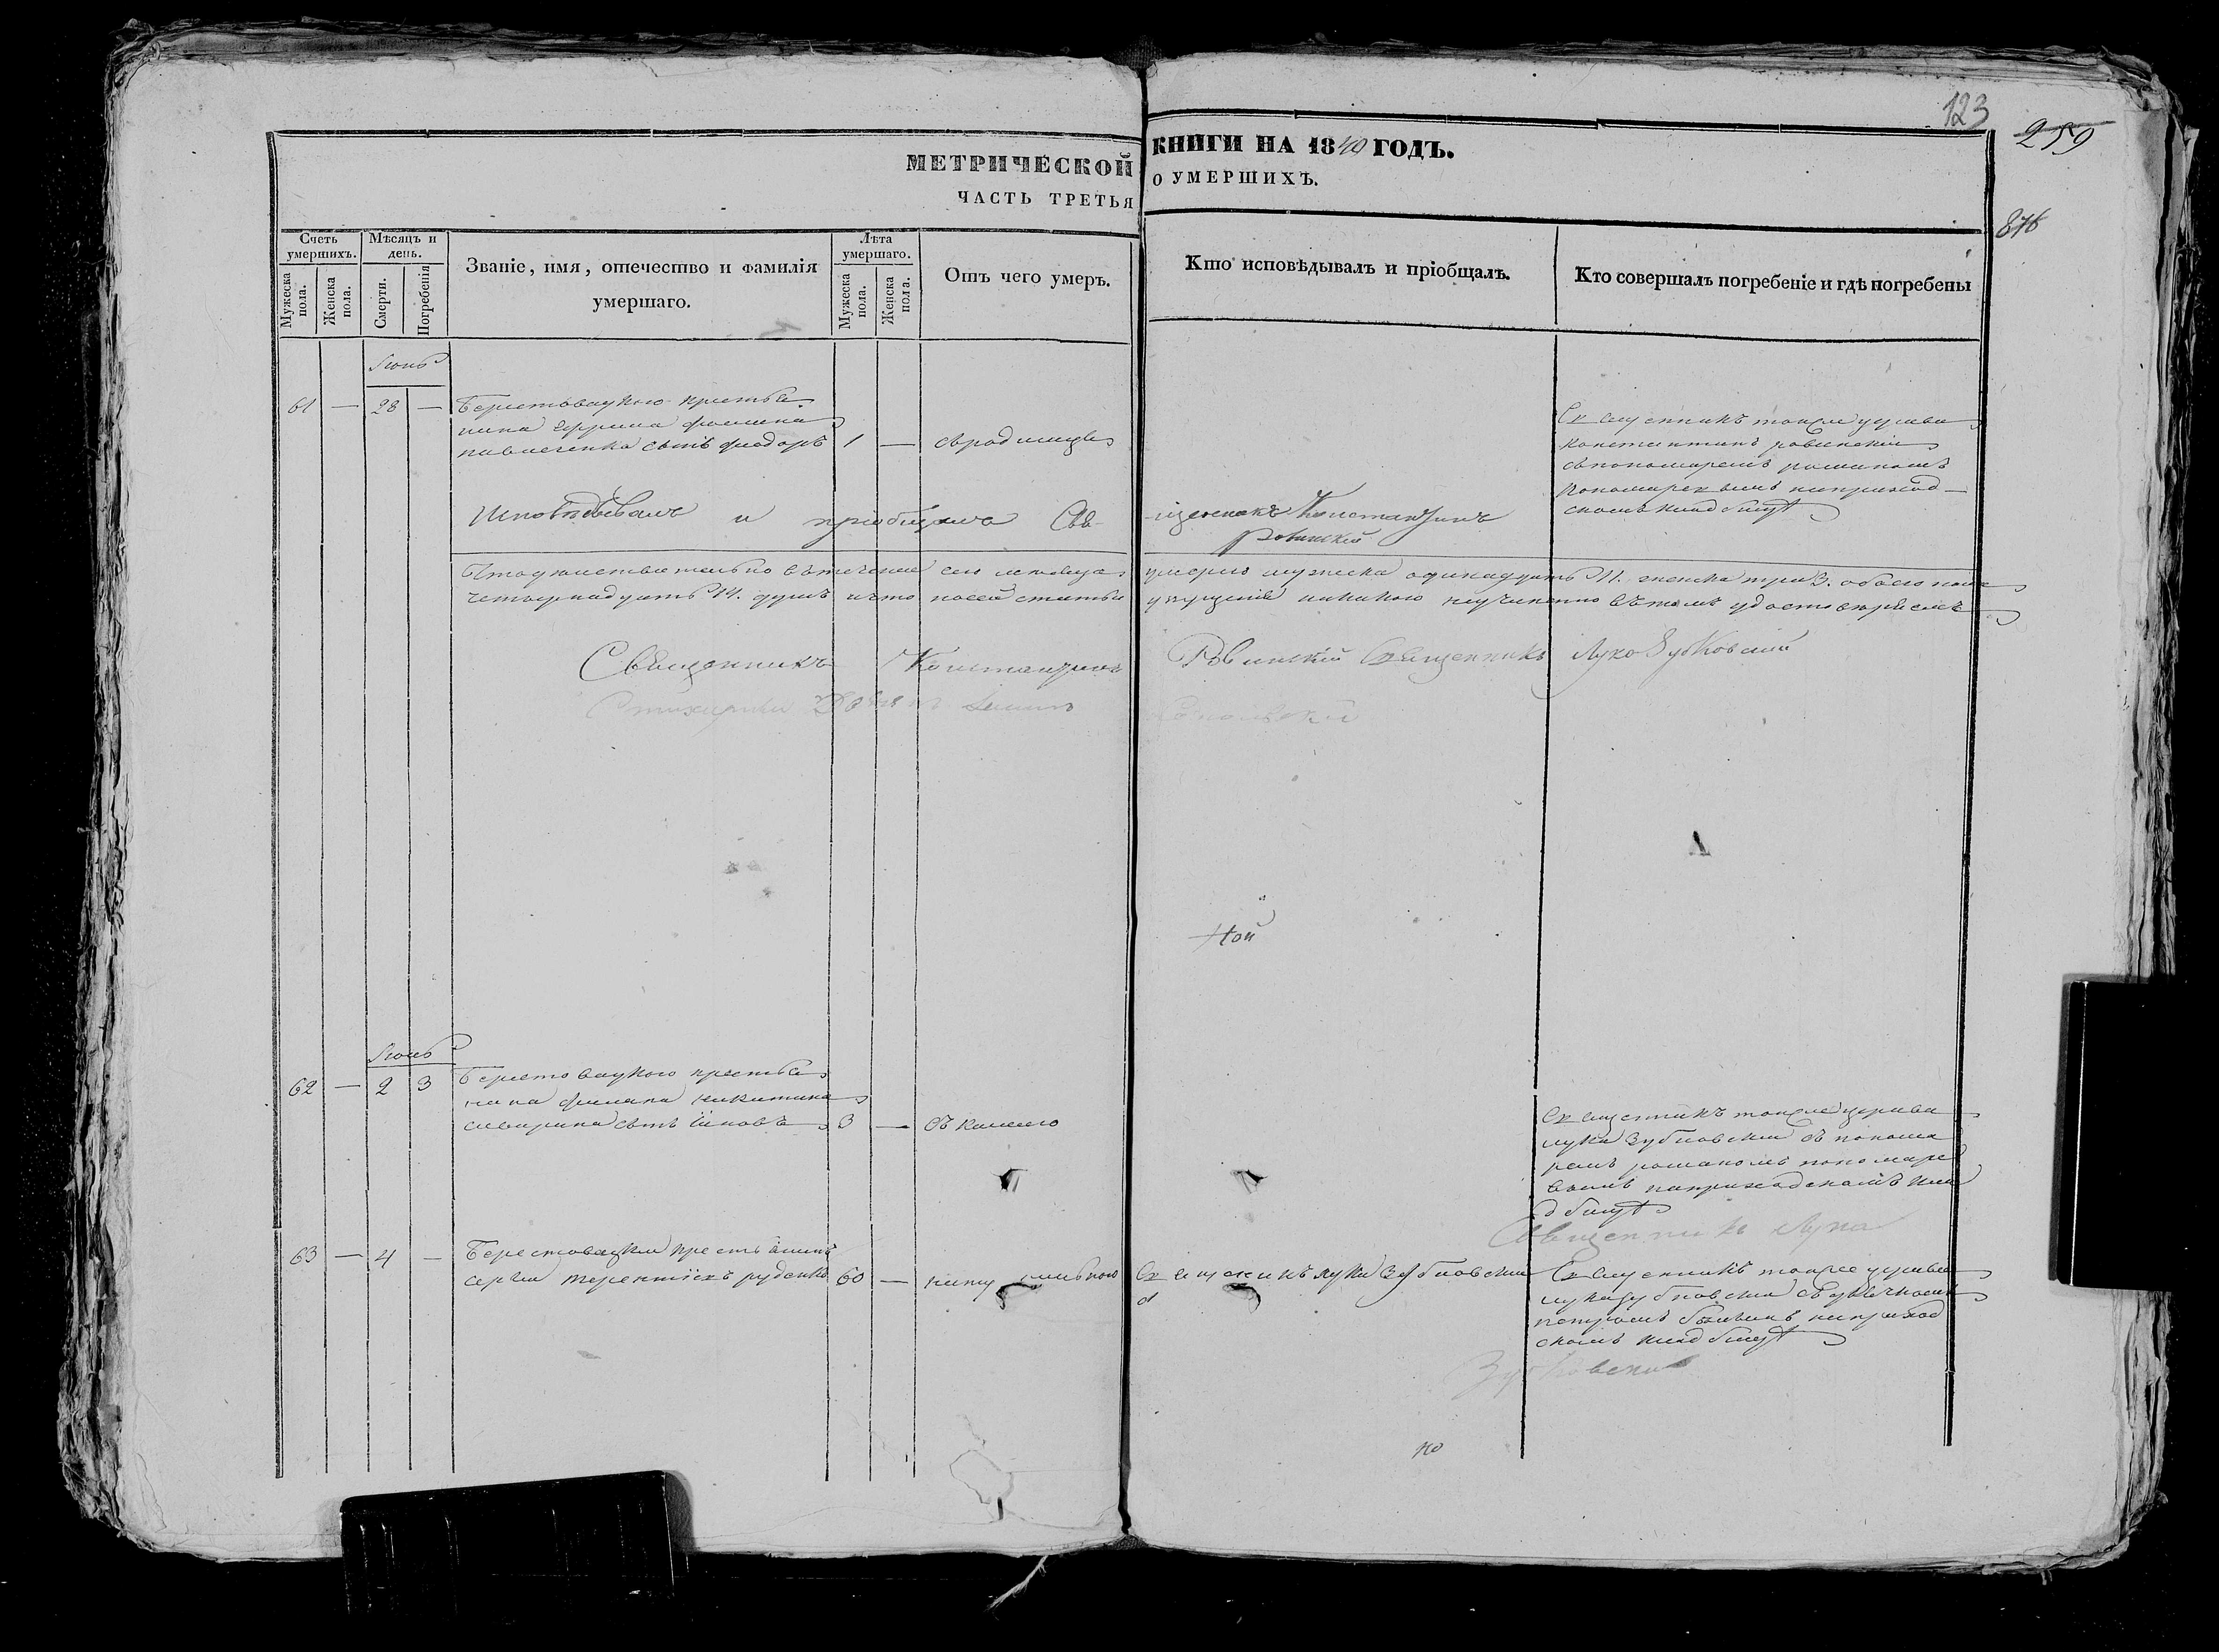 123
259
876
МЕТРИЧЕСКОЙ КНИГИ НА 1840 ГОДЪ.
ЧАСТЬ ТРЕТЬЯ О УМЕРШИХЪ.
Счетъ умершихъ.
Мужеска пола.
Женска пола.
Мѣсяцъ и день.
Смерти.
Погребенія
Званіе, имя, отечество и фамилія
умершаго.
Лѣта умершаго.
Мужеска пола.
Женска пола.
Отъ чего умеръ.
Кто исповѣдывалъ и пріобщалъ.
Кто совершалъ погребеніе и гдѣ погребены
61 — 28 — Берестовацкого крестья
нина Фомина
сынъ Федоръ 1 — съ родимца
Священникъ тояже церкви
Константинъ Ровинскій
съ пономаремъ романомъ
Пономаревымъ на приход
скомъ кладбищѣ
Исповѣдывалъ и пріобщалъ Свя-
щенникъ Константинъ
Ровинскій
Что дѣйствительно въ теченіи сего месяца умерло мужеска одинадцать 11. женска три 3. обоего пола
четырнадцать 14. душъ и что по сей статьи упущенія никакого неучинено въ томъ удостовѣряемъ
Священникъ Константинъ Ровинскій Священникъ Лука Зубковскій
62 — 2 3 Берестовацкого крестья
нина Филипа Никитина
сынъ Іяковъ 3 — съ кашлю
Священникъ тояже церкви
лука Зубковскій съ понома
ремъ романомъ пономаре
вымъ на приходскомъ кла
дбищѣ
Священникъ Лука
63 — 4 — Берестовацкій крестьянинъ
сергій терентіевъ руденко 60 —
Священникъ лука Зубковскій
Священникъ тояже церкви
лука Зубковскій съ дьячкомъ
петромъ на приход
скомъ кладбищѣ
Зубковскій
по